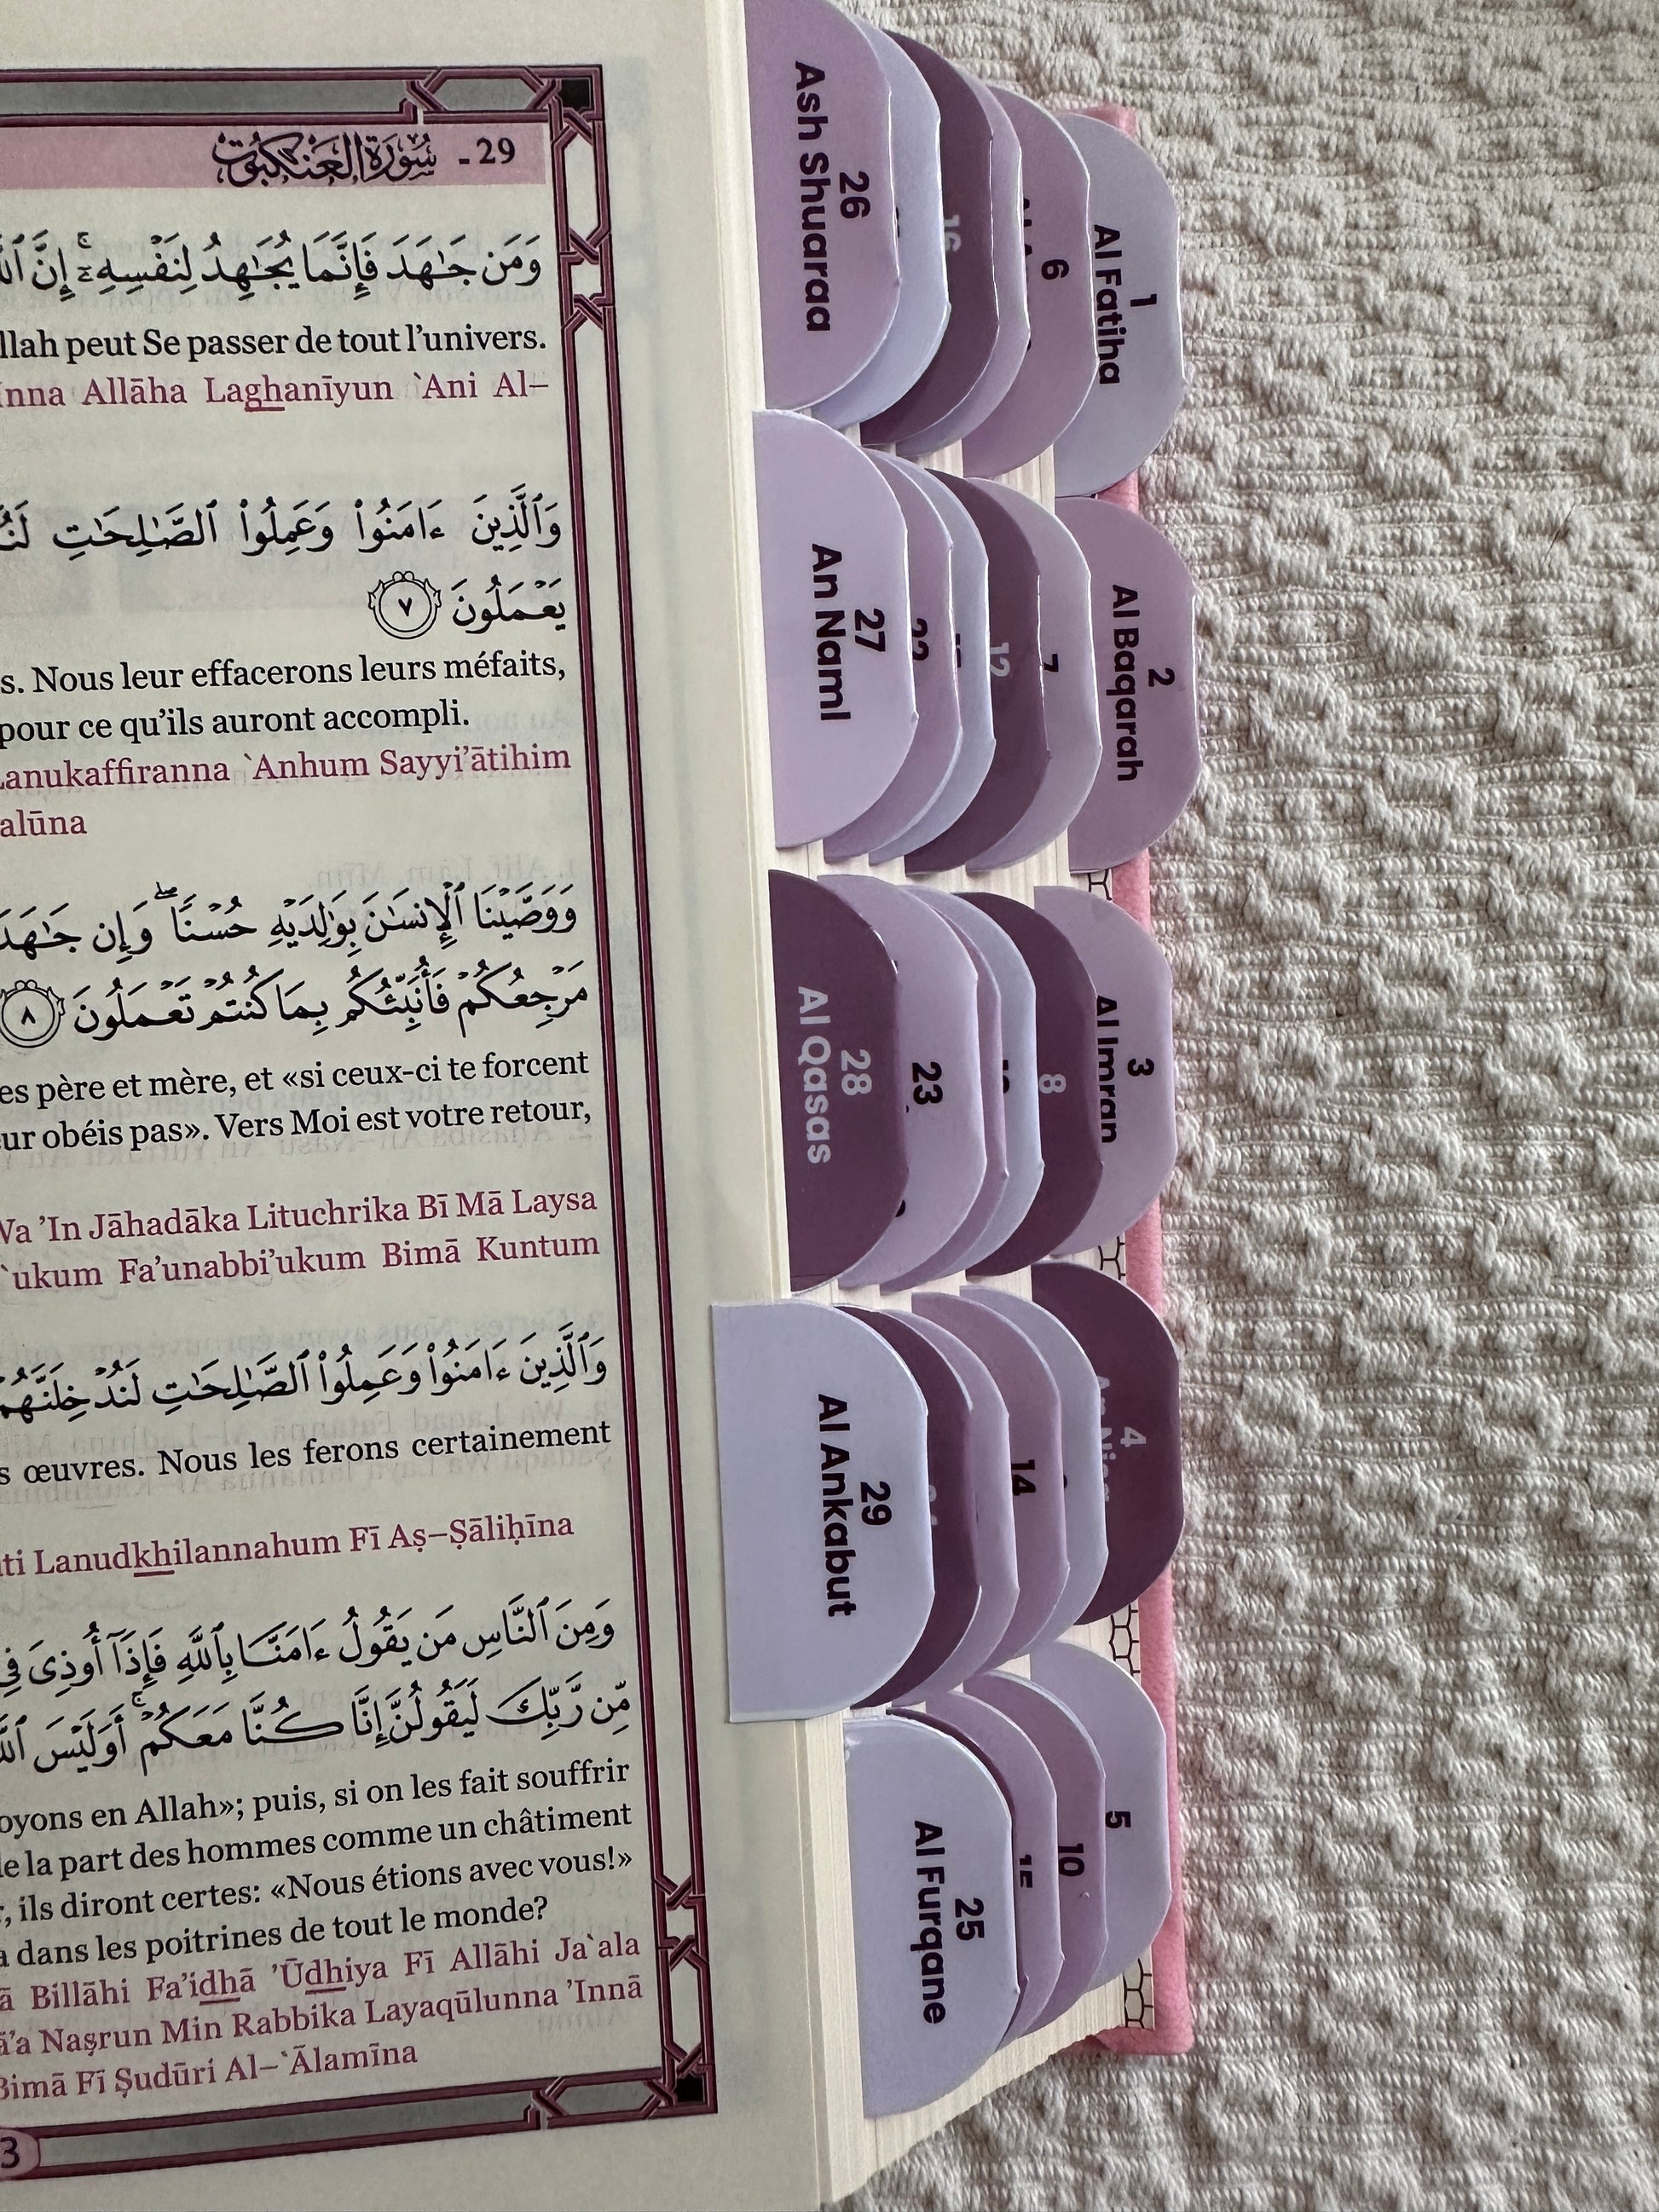 29 - سُورَةُ الْعَنْكَبُوتِ
وَمَن جَـٰهَدَ فَإِنَّمَا يُجَـٰهِدُ لِنَفْسِهِۦٓ ۚ إِنَّ
llah peut Se passer de tout l’univers.
Inna Allāha Laghanīyun `Ani Al–
وَٱلَّذِينَ ءَامَنُوا۟ وَعَمِلُوا۟ ٱلصَّـٰلِحَـٰتِ
يَعْمَلُونَ ٧
s. Nous leur effacerons leurs méfaits,
pour ce qu’ils auront accompli.
Lanukaffiranna `Anhum Sayyi’ātihim
alūna
وَوَصَّيْنَا ٱلْإِنسَـٰنَ بِوَٰلِدَيْهِ حُسْنًا ۖ وَإِن جَـٰهَدَ
مَرْجِعُكُمْ فَأُنَبِّئُكُم بِمَا كُنتُمْ تَعْمَلُونَ ٨
es père et mère, et «si ceux-ci te forcent
ur obéis pas». Vers Moi est votre retour,
Wa ’In Jāhadāka Lituchrika Bī Mā Laysa
`ukum Fa’unabbi’ukum Bimā Kuntum
وَٱلَّذِينَ ءَامَنُوا۟ وَعَمِلُوا۟ ٱلصَّـٰلِحَـٰتِ لَنُدْخِلَنَّهُمْ
s œuvres. Nous les ferons certainement
ti Lanudkhilannahum Fī Aṣ–Ṣāliḥīna
وَمِنَ ٱلنَّاسِ مَن يَقُولُ ءَامَنَّا بِٱللَّهِ فَإِذَآ أُوذِىَ فِى
مِّن رَّبِّكَ لَيَقُولُنَّ إِنَّا كُنَّا مَعَكُمْ ۚ أَوَلَيْسَ
oyons en Allah»; puis, si on les fait souffrir
de la part des hommes comme un châtiment
r, ils diront certes: «Nous étions avec vous!»
a dans les poitrines de tout le monde?
ā Billāhi Fa’idhā ’Ūdhiya Fī Allāhi Ja`ala
ā’a Naṣrun Min Rabbika Layaqūlunna ’Innā
Bimā Fī Ṣudūri Al–`Ālamīna
3
26
Ash Shuaraa
16
6
1
Al Fatiha
27
An Naml
22
12
7
2
Al Baqarah
28
Al Qasas
23
8
3
Al Imran
29
Al Ankabut
14
4
An Nisa
25
Al Furqane
15
10
5